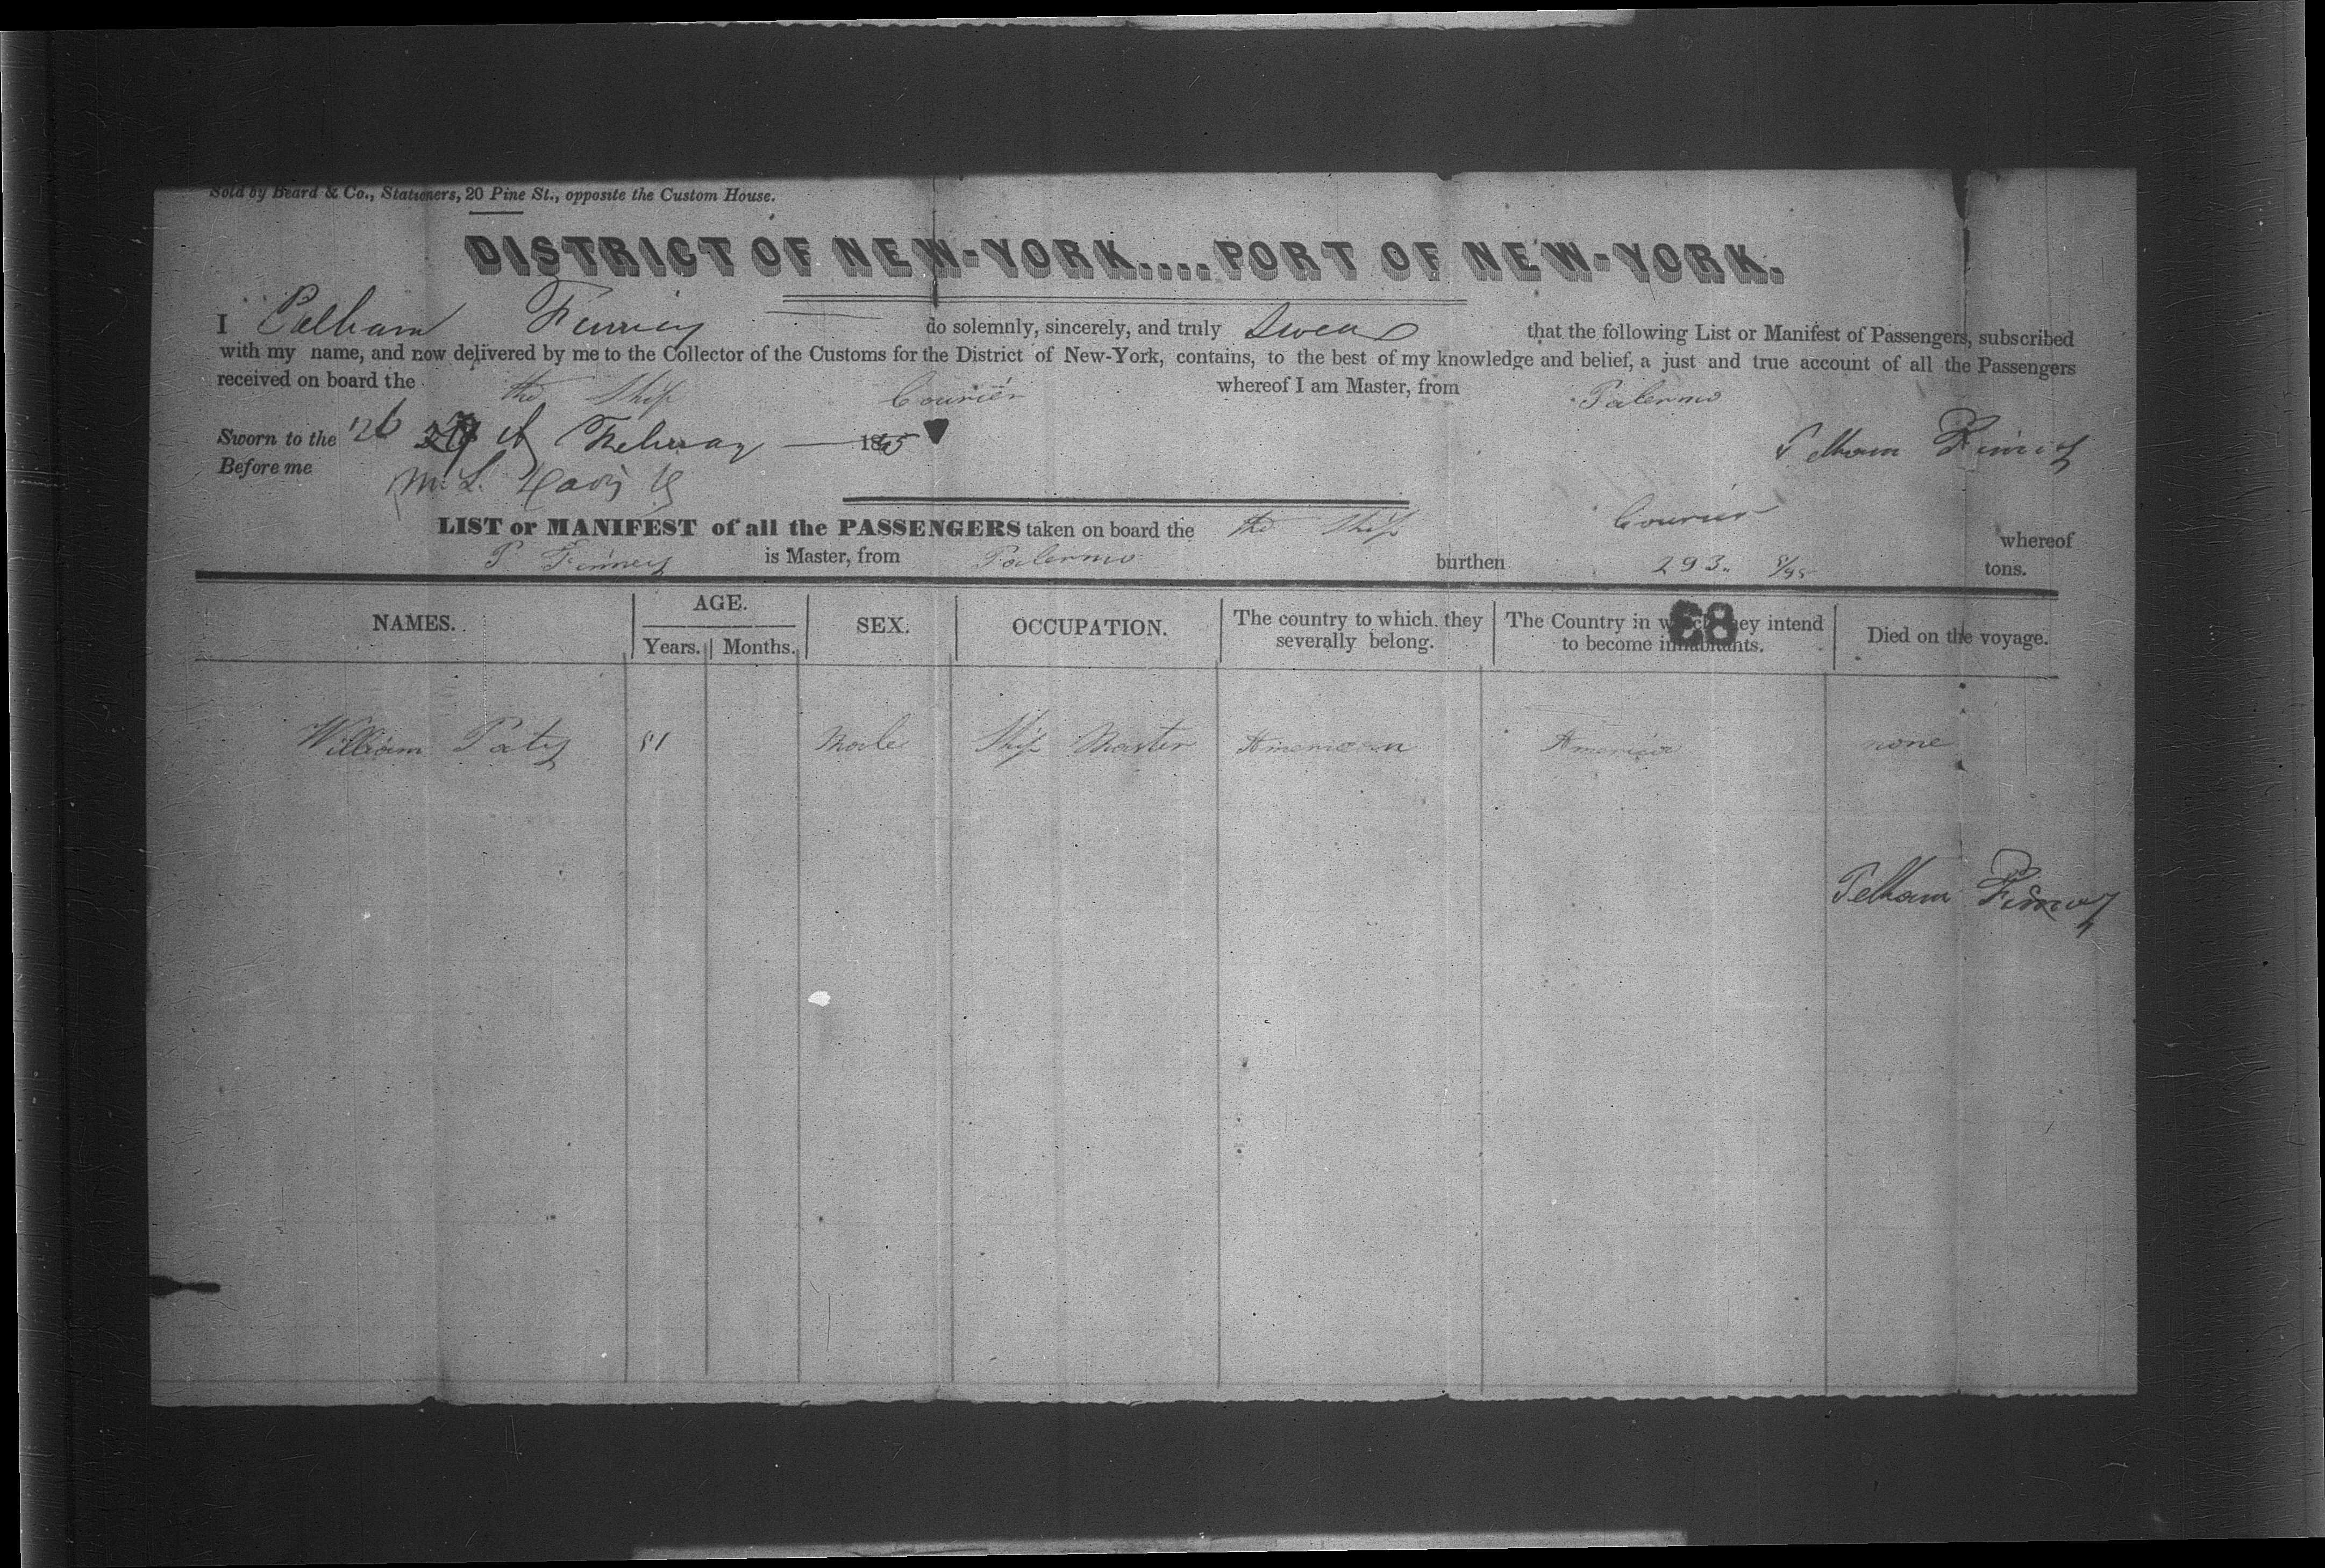 Sold by Beard & Co., Stationers, 20 Pine St., opposite the Custom House.
DISTRICT OF NEW-YORK....PORT OF NEW-YORK.
I Pelham Finney do solemnly, sincerely, and truly Swear that the following List or Manifest of Passengers, subscribed
with my name, and now delivered by me to the Collector of the Customs for the District of New-York, contains, to the best of my knowledge and belief, a just and true account of all the Passengers
received on board the the Ship Courier whereof I am Master, from Palermo
Sworn to the 26 of February 1845 Pelham Finney
Before me M. L.
LIST or MANIFEST of all the PASSENGERS taken on board the the Ship Courier whereof
P Finney is Master, from Palermo burthen 293 tons.
NAMES. AGE. SEX. OCCUPATION. The country to which they severally belong. The Country in which they intend to become inhabitants. Died on the voyage.
Years. Months.
83
William Paty 51 Male Ship Master American America none
Pelham Finney